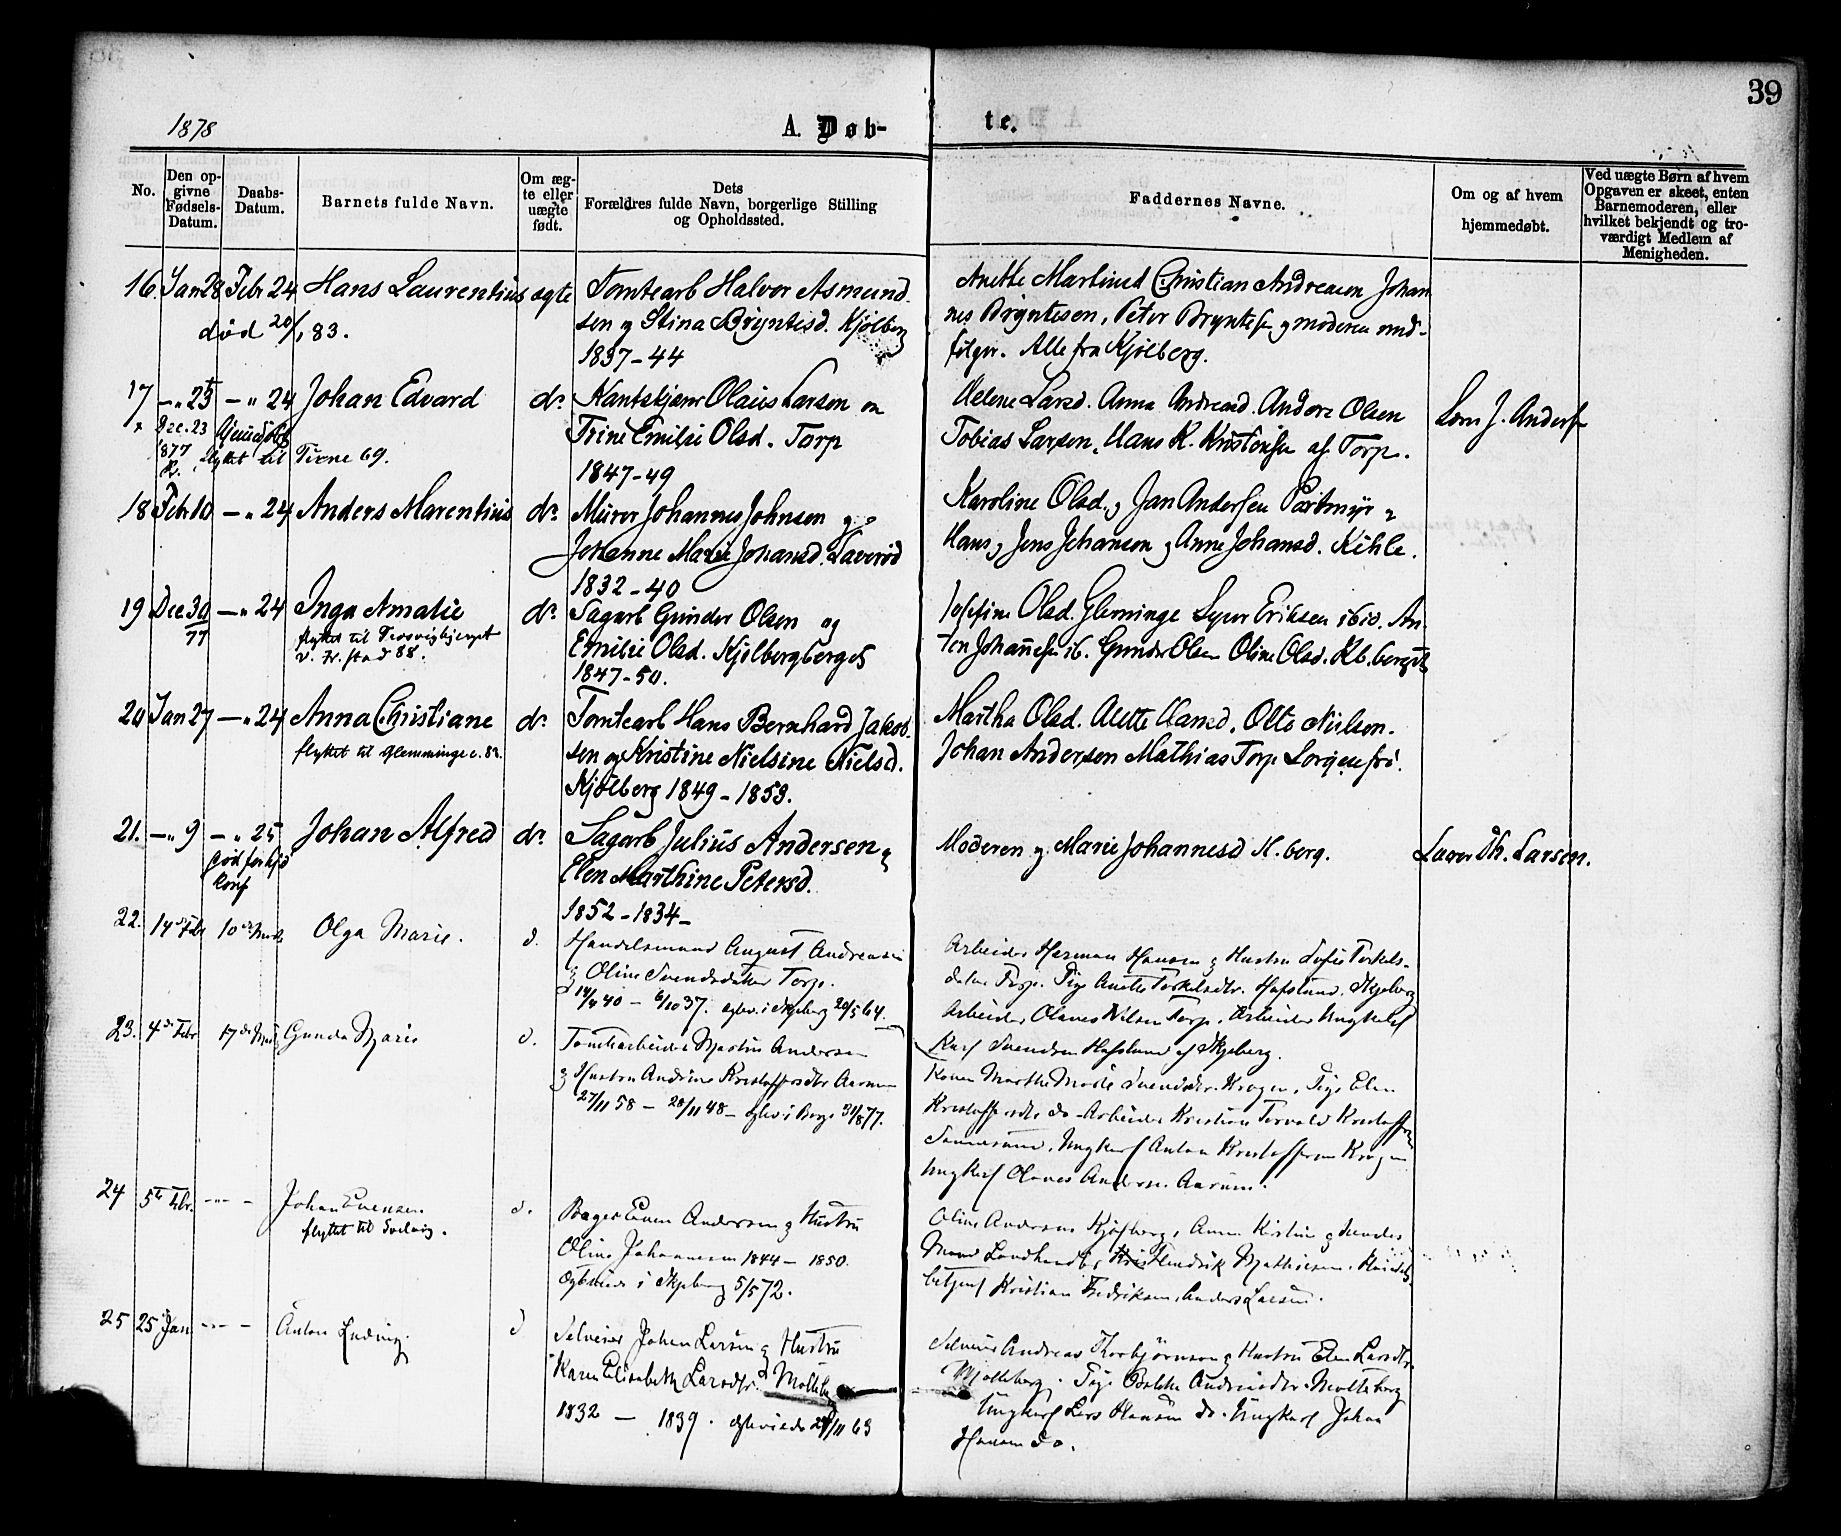 39
1878
A. Døb-
te.
No.
Den op-
givne
Fødsels-
Datum.
Daabs-
Datum.
Barnets fulde Navn.
Om æg-
te eller
uægte
født.
Dets
Forældres fulde Navn, borgerlige Stilling
og Opholdssted.
Faddernes Navne.
Om og af hvem
hjemmedøbt.
Ved uægte Børn af hvem
Opgaven er skeet, enten
Barnemoderen, eller
hvilket bekjendt og tro-
værdigt Medlem af
Menigheden.
16. Jan 28 Febr 24 Hans Laurentius ægte Tomtearb Halvor Asmund
død 20/1 83.
sen og Stina Bryntesd. Kjølberg
1837-44
Anette Martinsd Christian Andreasen Johan
nes Bryntesen, Peter Bryntesen og moderen med-
følger. Alle fra Kjølberg.
17 -"- 25 -"- 24 Johan Edvard do. Olaus Larsen
Dec. 23
1877
flyttet til Tune 69.
Trine Emilie Olsd. Torp
1847-49
Helene Larsd. Anna Andreasd. Anders Olsen
Tobias Larsen, Hans K. Kristensen af Torp.
J. Anders
18 Febr 10 -"- 24 Anders Marentius do. Murer Johannes Johnsen og
Johanne Marie Johansd. Laverød
1832-40
Karoline Olsd. og Jan Andersen
Hans og Jens Johansen og Anne Johansd. Kihle.
19 Dec 30 -"- 24 Inga Amalie do. Sagarb Gunder Olsen og
77
flyttet til Trosvigbjerget
v. Fr.stad 88.
Emilie Olsd. Kjølbergberget
1847-50.
Josefine Olsd. Glemminge Syver Eriksen ibid. An-
ton Johannesen ib. Gunder Olsen Oline Olsd. Kb. berget
20 Jan 27 -"- 24 Anna Christiane do. Tomtearb Hans Bernhard Jakob
flyttet til Glemminge 83.
sen og Kristine Nielsine Nielsd.
Kjølberg 1849-1853.
Martha Olsd. Anette Hansd. Otto Nielsen.
Johan Andersen Mathias Torp Sorgenfri.
21. -"- 9 -"- 25 Johan Alfred do. Sagarb Julius Andersen og
Elen Marthine Petersd.
1852-1834-
Moderen og Marie Johannesd K. berg.
Th. Larsen.
22. 14de Febr 10de Olga Marie. d. Handelsmand August Andreasen
og Oline Svendsdatter Torp.
14/4 40 - 6/10 37. egtev. i Skjeberg 20/5 64.
Arbeider Herman Hansen og Hustru Sofie Torkels-
datter Torp. Pige Anette Torkelsdtr. Hafslund. Skjeberg
Arbeider Olaves Nilsen Torp, Arbeider Ungkarl
Karl Svendsen Hafslund af Skjeberg.
23. 4de Febr 17de Gunda Marie d. Tomtearbeider Martin Andersen
og Hustru Andrine Kristoffersdtr Aarum
27/11 58 - 28/11 48 - egtev i Borge 31/8 77.
Konen Marthe Marie Svendsdtr. Krogen, Pige Elen
Kristoffersdtr do - Arbeider Kristian Torvald Kristoffersen
Ungkarl Anton Kristoffersen Krogen
Ungkarl Olaves Andersen Aarum.
24 5te Febr. -"- - Johan Evensen d. Bager Even Andersen og Hustru
flyttet til Solvig.
Oline Johannesen 1844 - 1850.
Egteviede i Skjeberg 5/5 72.
Oline Andersen Kjølberg, Anne Kirstine
Landhandler Hendrik Mathiesen.
Kristian Fredriksen, Anders Larsen.
25 25de Jan -"- - Anton Ludvig d Selveier Johan Larsen og Hustru
Karen Elisabeth Larsdtr. Molleberg
1832 - 1839. egteviede 24/11 63
Selveier Andreas Thorbjørnsen og Hustru Elen Larsdtr
Molleberg. Pige Andreasdtr. Molleberg
Ungkarl Lars Hansen do. Ungkarl Johan
Hansen do.